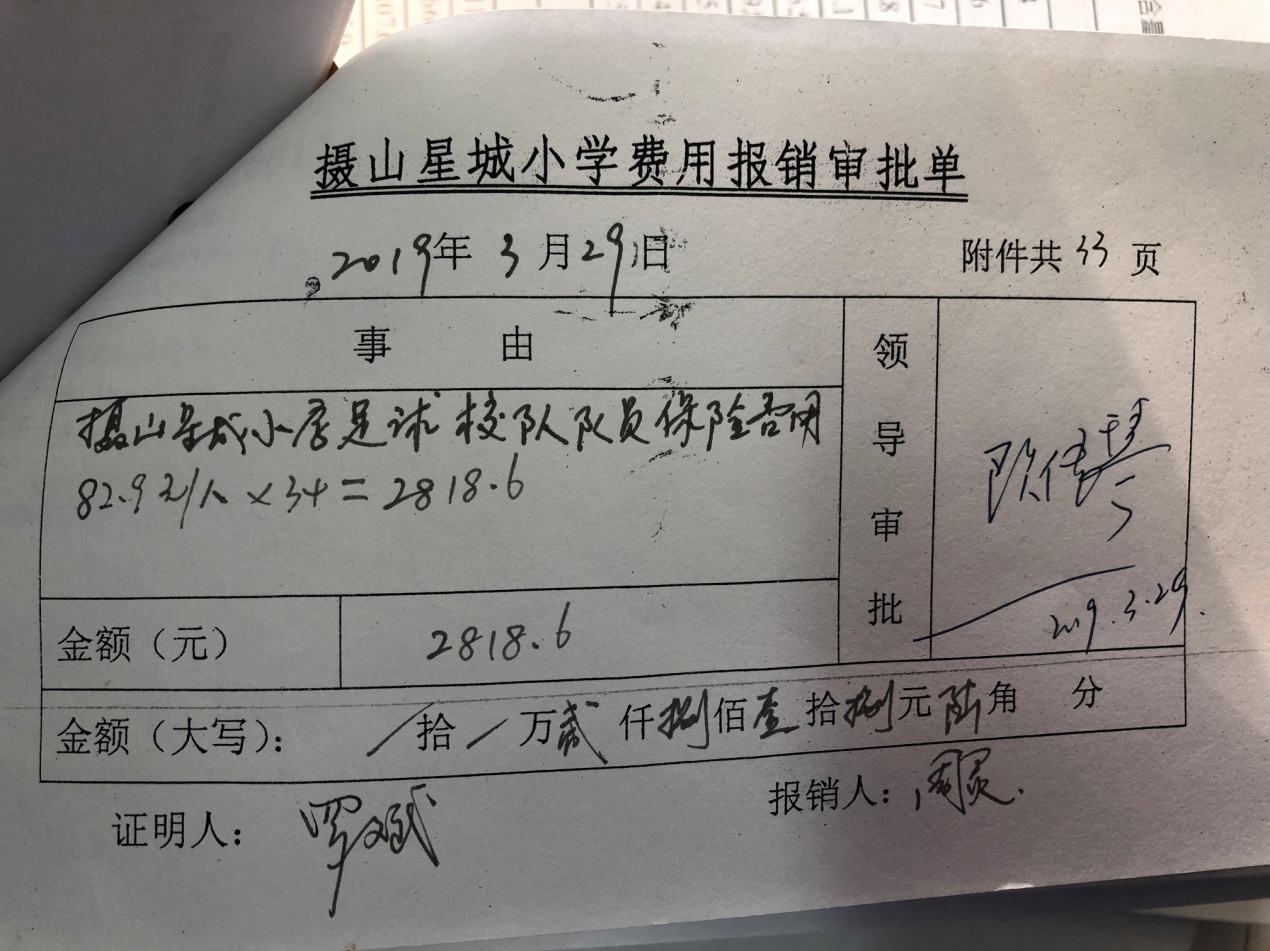 摄山星城小学费用报销审批单
2019年 3月29日 附件共33页
事由
领导审批
摄山星城小学足球校队队员保险费用
82.9元/人×34=2818.6
金额（元） 2818.6
2019.3.29.
金额（大写）： /拾/万贰仟捌佰壹拾捌元陆角 分
证明人： 罗斌
报销人： 周灵